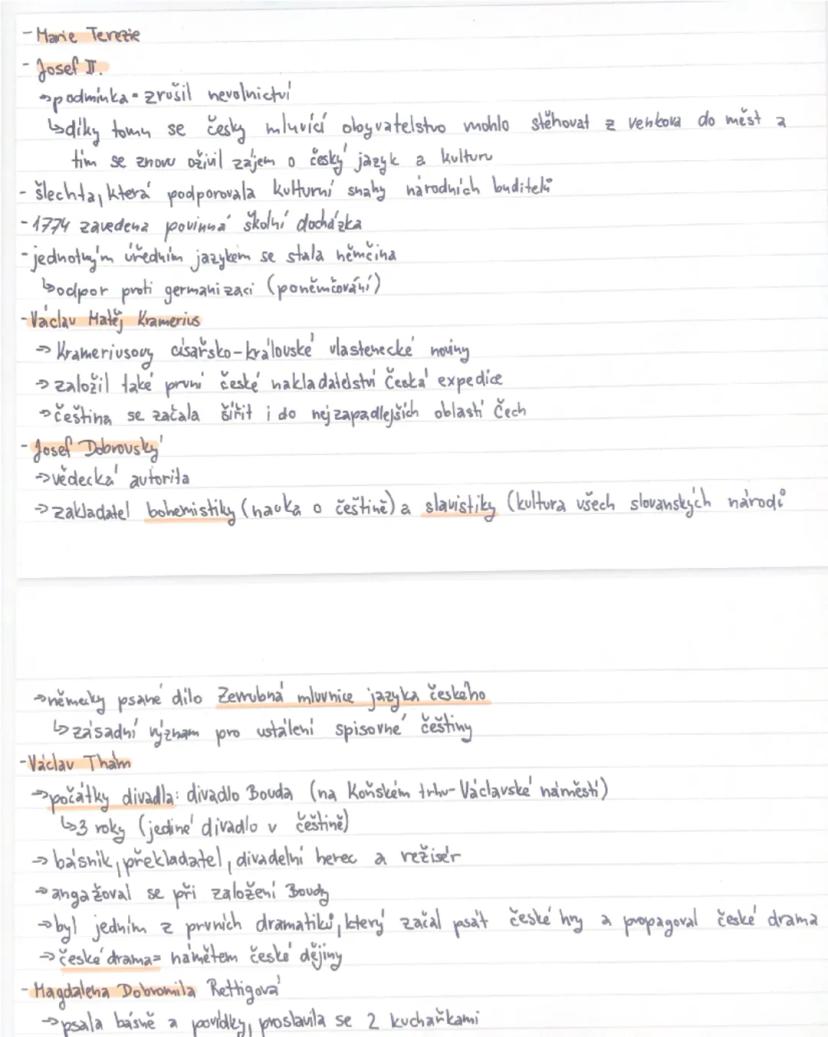 - Marie Terezie
- Josef II.
→podmínka = zrušil nevolnictví
↳díky tomu se česky mluvící obyvatelstvo mohlo stěhovat z venkova do měst a
tím se znovu oživil zájem o český jazyk a kulturu
- šlechta, která podporovala kulturní snahy národních buditelů
- 1774 zavedena povinná školní docházka
- jednotným úředním jazykem se stala němčina
↳odpor proti germanizaci (poněmčování)
- Václav Matěj Kramerius
→ Krameriusovy císařsko-královské vlastenecké noviny
→ založil také první české nakladatelství Česká expedice
→ čeština se začala šířit i do nejzapadlejších oblastí Čech
- Josef Dobrovský
→ vědecká autorita
→ zakladatel bohemistiky (nauka o češtině) a slavistiky (kultura všech slovanských národů
→ německy psané dílo Zevrubná mluvnice jazyka českého
↳ zásadní význam pro ustálení spisovné češtiny
- Václav Thám
→ počátky divadla: divadlo Bouda (na Koňském trhu - Václavské náměstí)
↳ 3 roky (jediné divadlo v češtině)
→ básník, překladatel, divadelní herec a režisér
→ angažoval se při založení Boudy
→ byl jedním z prvních dramatiků, který začal psát české hry a propagoval české drama
→ české drama = námětem české dějiny
- Magdalena Dobromila Rettigová
→ psala básně a povídky, proslavila se 2 kuchařkami